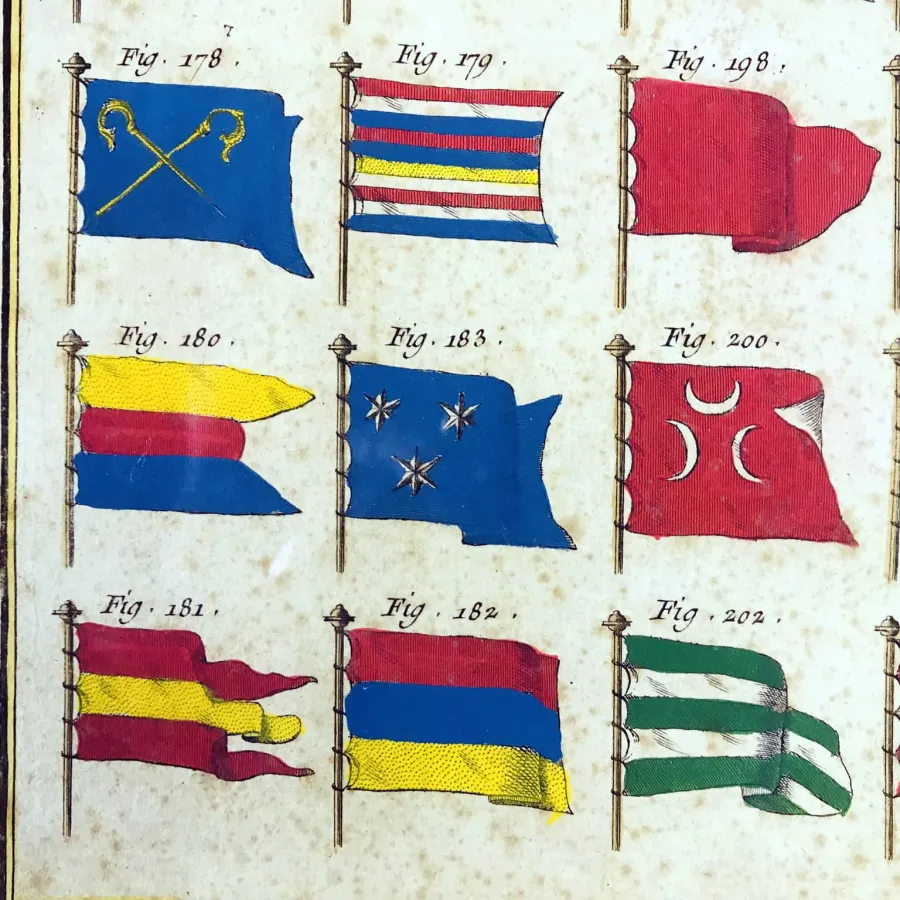 Fig. 178.
Fig. 179.
Fig. 198.
Fig. 180.
Fig. 183.
Fig. 200.
Fig. 181.
Fig. 182.
Fig. 202.